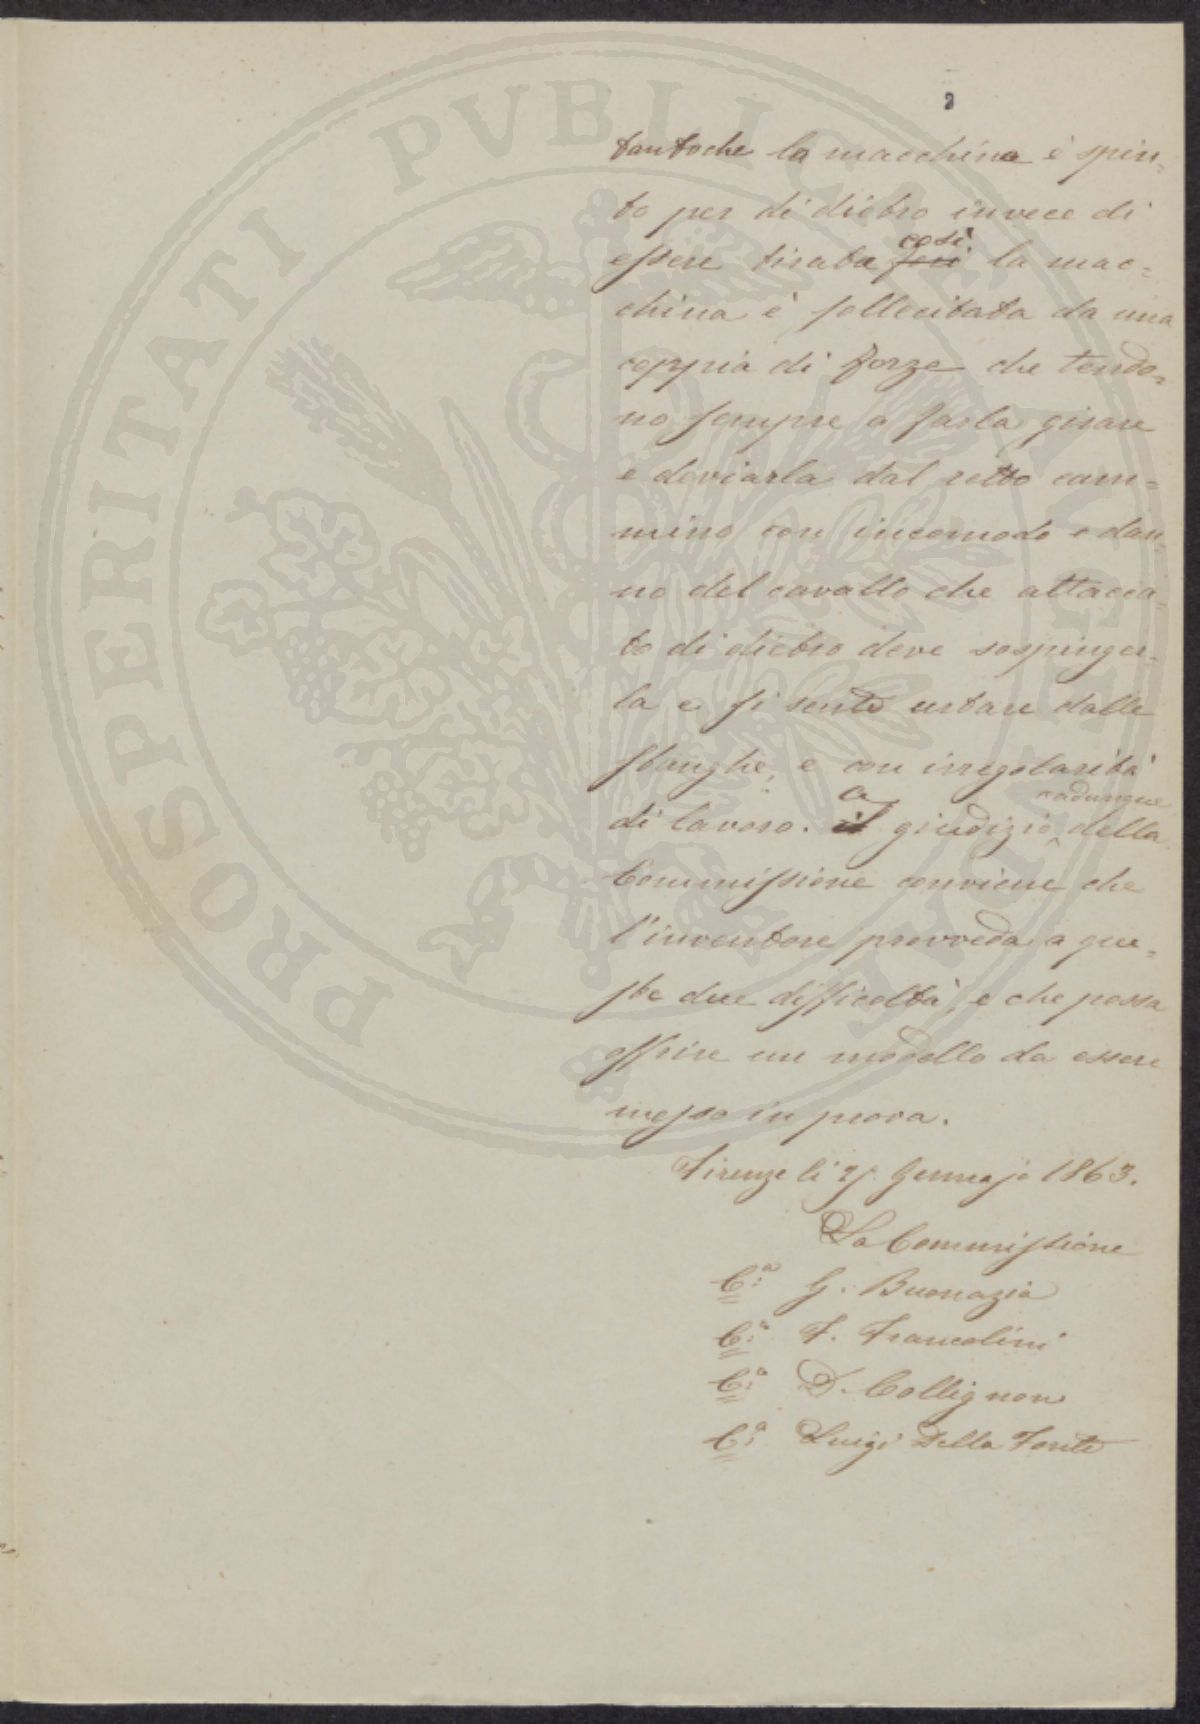 2
tantoche la macchina è spin-
ta per di dietro invece di
essere tirata così la mac-
china è sollecitata da una
coppia di forze che tendo-
no sempre a farla girare
e deviarla dal retto cam-
mino con incomodo e dan-
no del cavallo che attacca-
to di dietro deve sospinger-
la e si sente urtare dalle
stanghe, e con irregolarità
di lavoro. a giudizio adunque della
Commissione conviene che
l'inventore provveda a que-
ste due difficoltà, e che possa
offrire un modello da essere
messo in prova.
Firenze li Gennajo 1863.
La Commissione
C.i G. Buonazia
C.i F. Francolini
C.i D. Collignon
C.i Luigi Della Fonte
PROSPERITATI PVBLICAE AVGENDAE